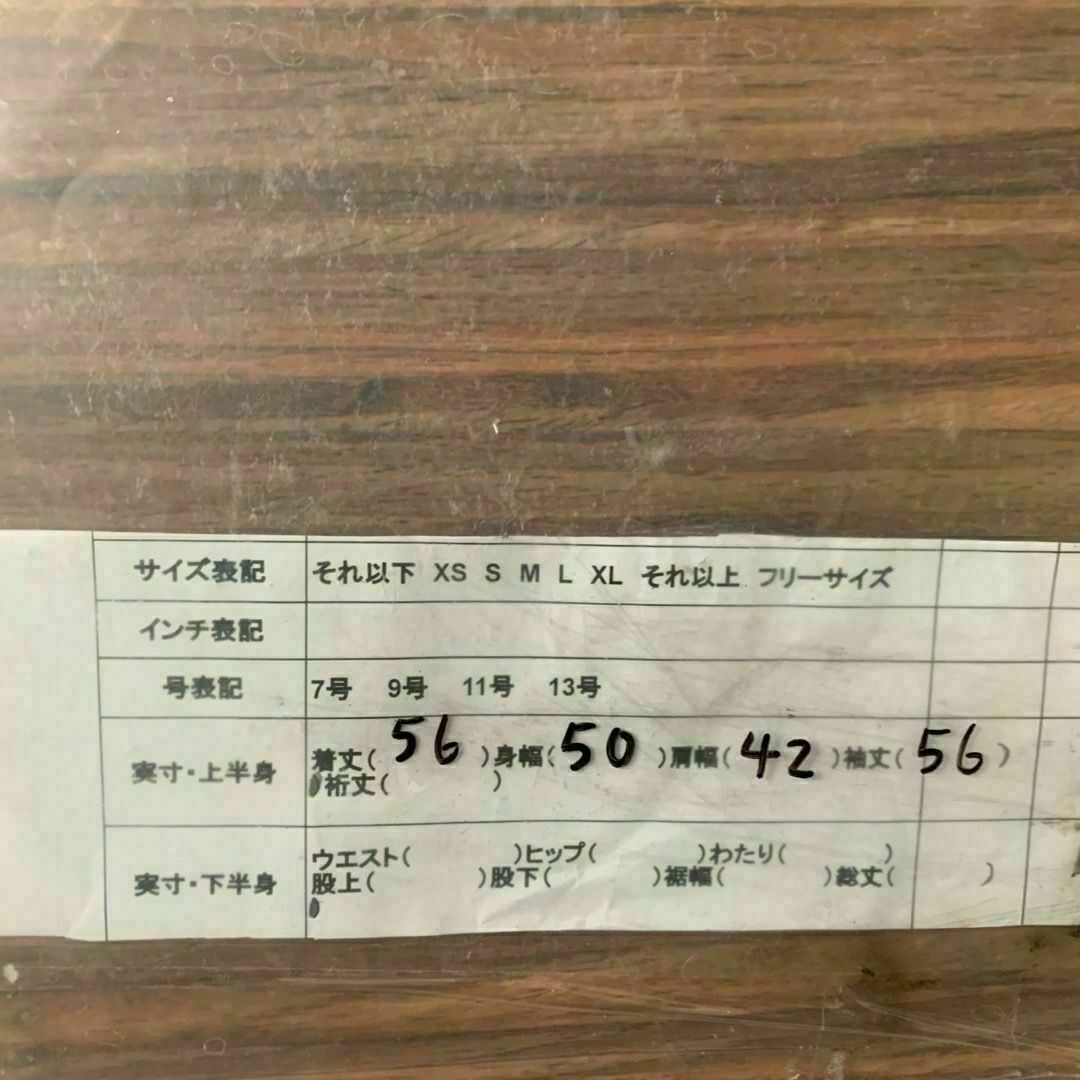 サイズ表記 それ以下 XS S M L XL それ以上 フリーサイズ
インチ表記
号表記 7号 9号 11号 13号
実寸・上半身 着丈( 56 )身幅( 50 )肩幅( 42 )袖丈( 56 )
裄丈( )
実寸・下半身 ウエスト( )ヒップ( )わたり( )
股上( )股下( )裾幅( )総丈( )